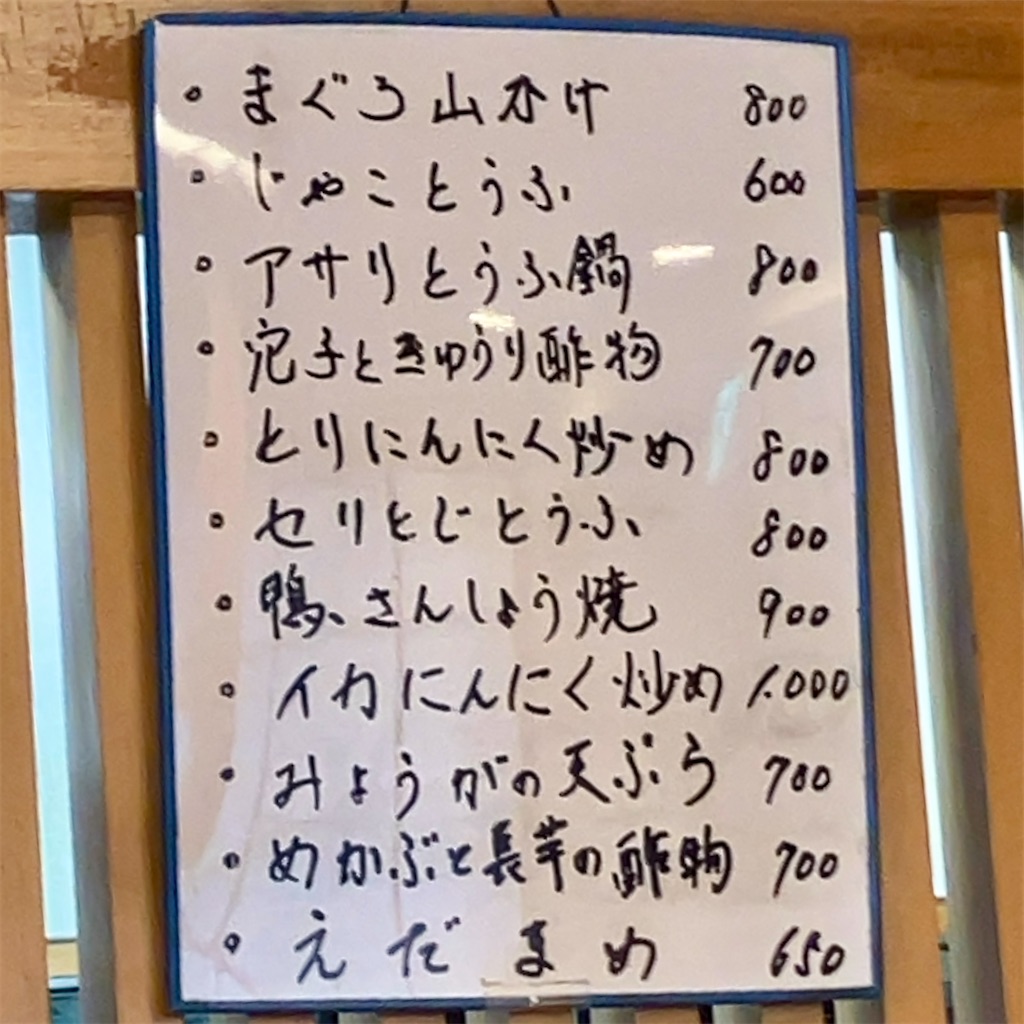 。まぐろ山かけ 800
。じゃことうふ 600
。アサリとうふ鍋 800
。穴子ときゅうり酢物 700
。とりにんにく炒め 800
。セリとじとうふ 800
。鴨、さんしょう焼 900
。イカにんにく炒め 1.000
。みょうがの天ぷら 700
。めかぶと長芋の酢物 700
。えだまめ 650